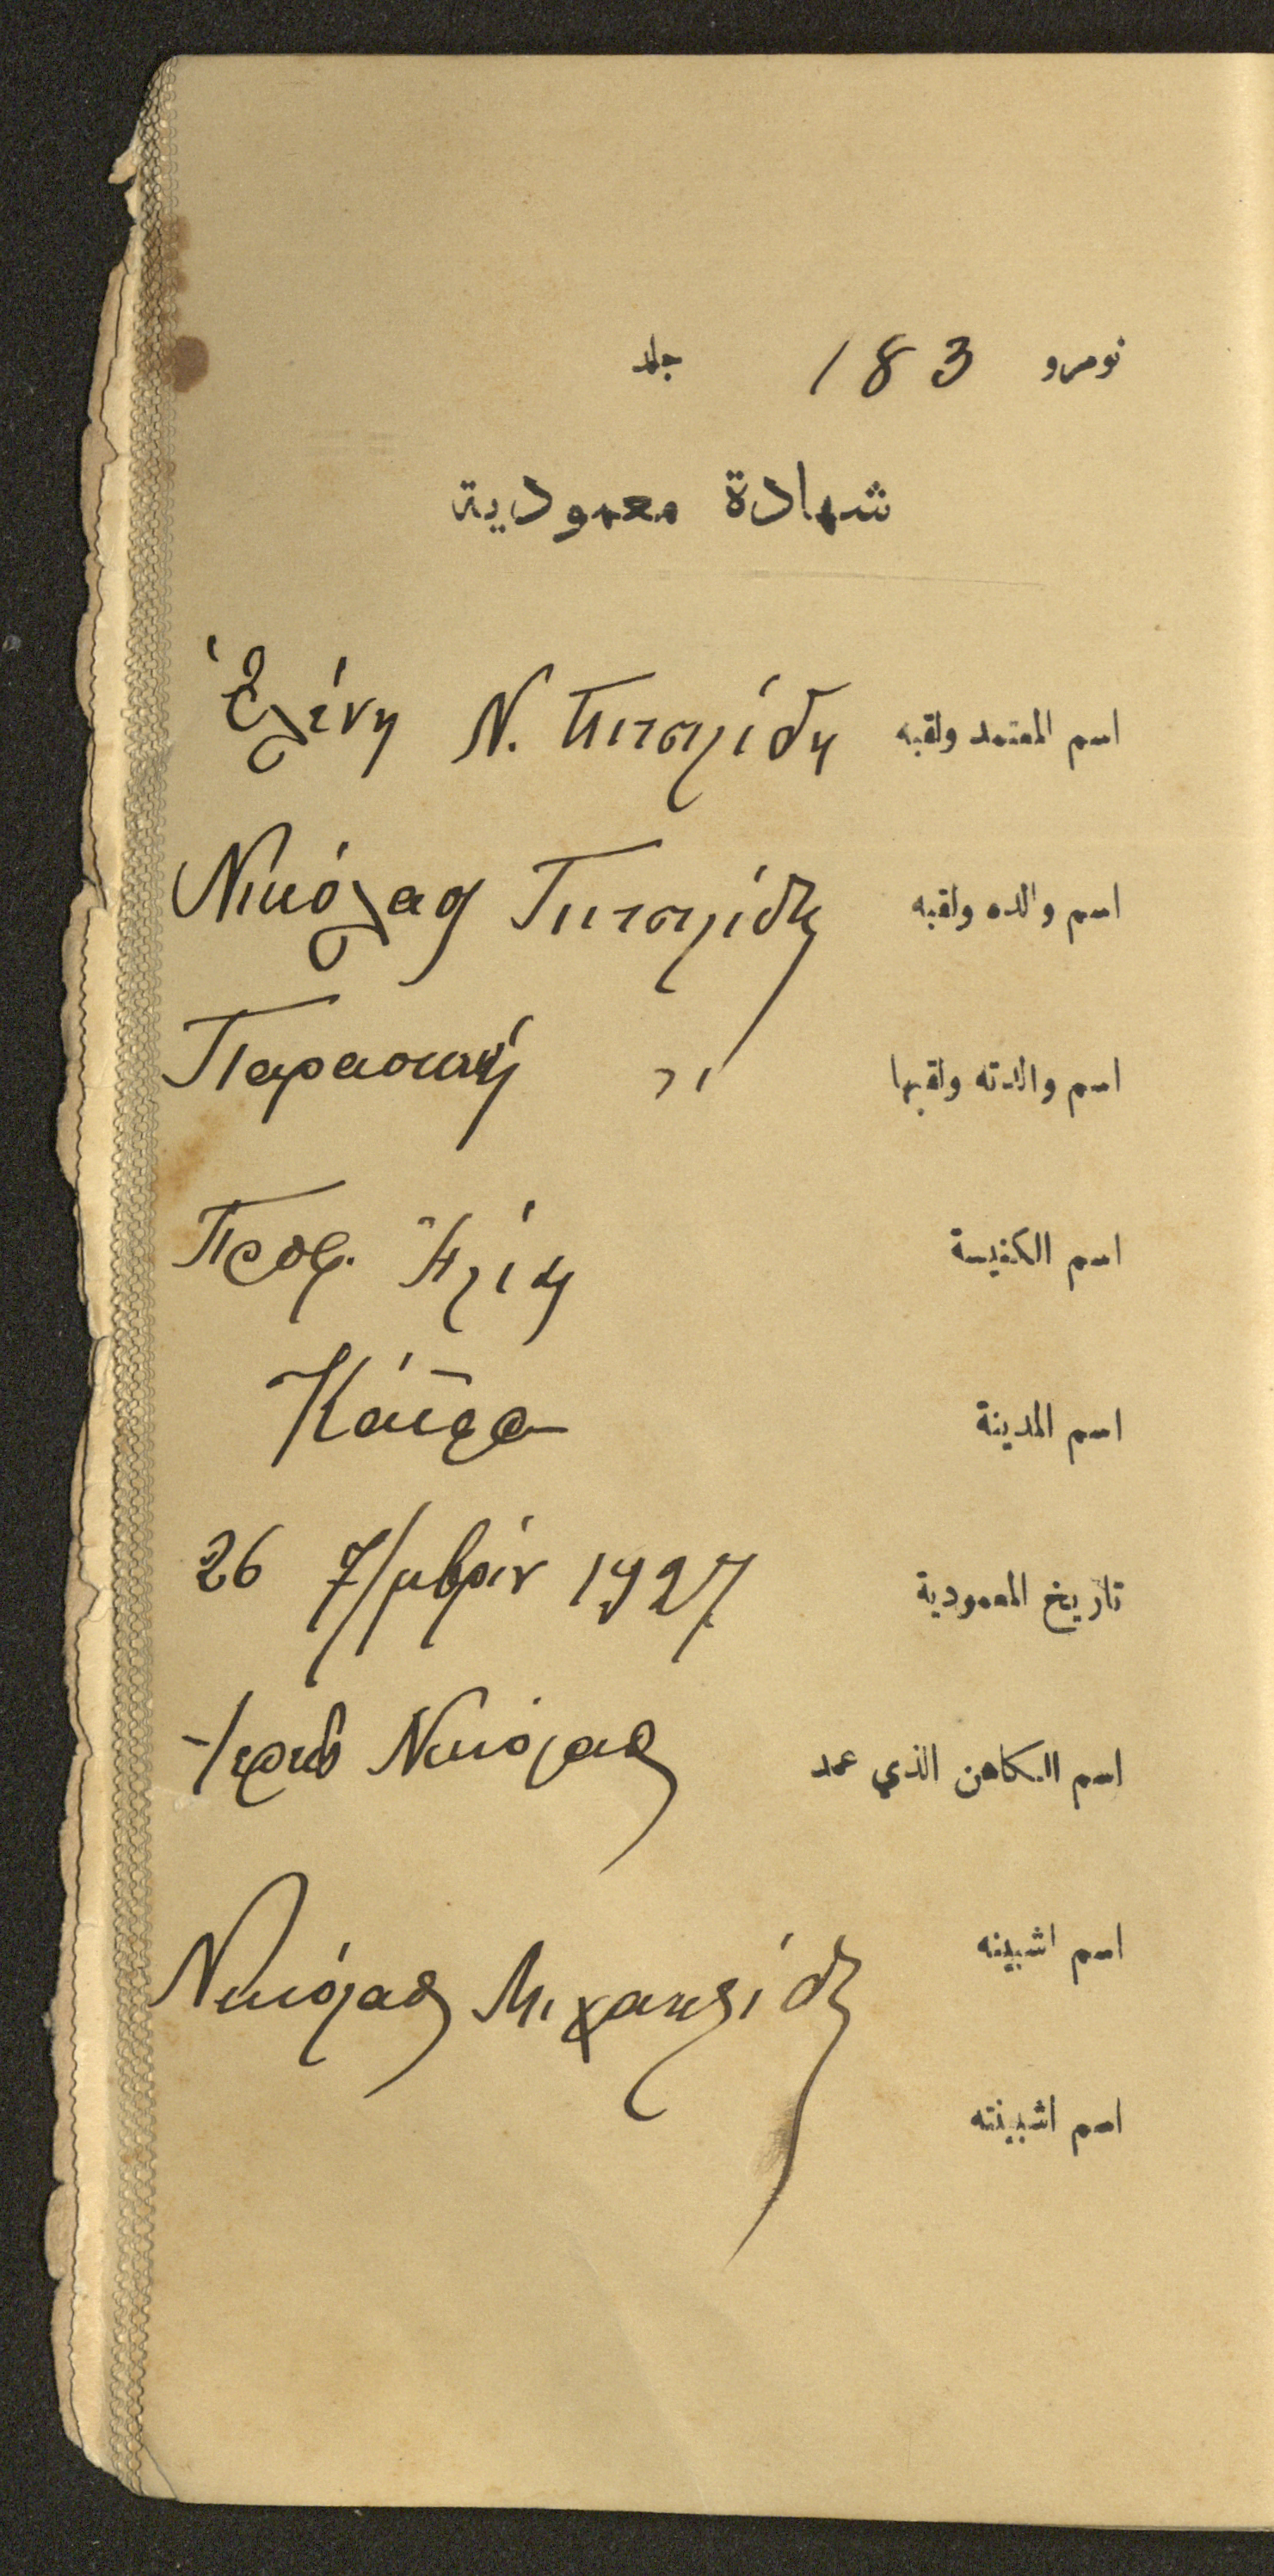 نومرو 183 جلد
شهادة معمودية
اسم المعتمد ولقبه Ἑλένη Ν.
اسم والده ولقبه Νικόλαος
اسم والدته ولقبها Παρασκευή "
اسم الكنيسة Προφ. Ἠλίας
اسم المدينة Κάϊρο
تاريخ المعمودية 26 7/μβρίου 1927
اسم الكاهن الذي عمد Ἱερεὺς Νικόλαος
اسم اشبينه Νικόλαος Μιχαηλίδης
اسم اشبينته